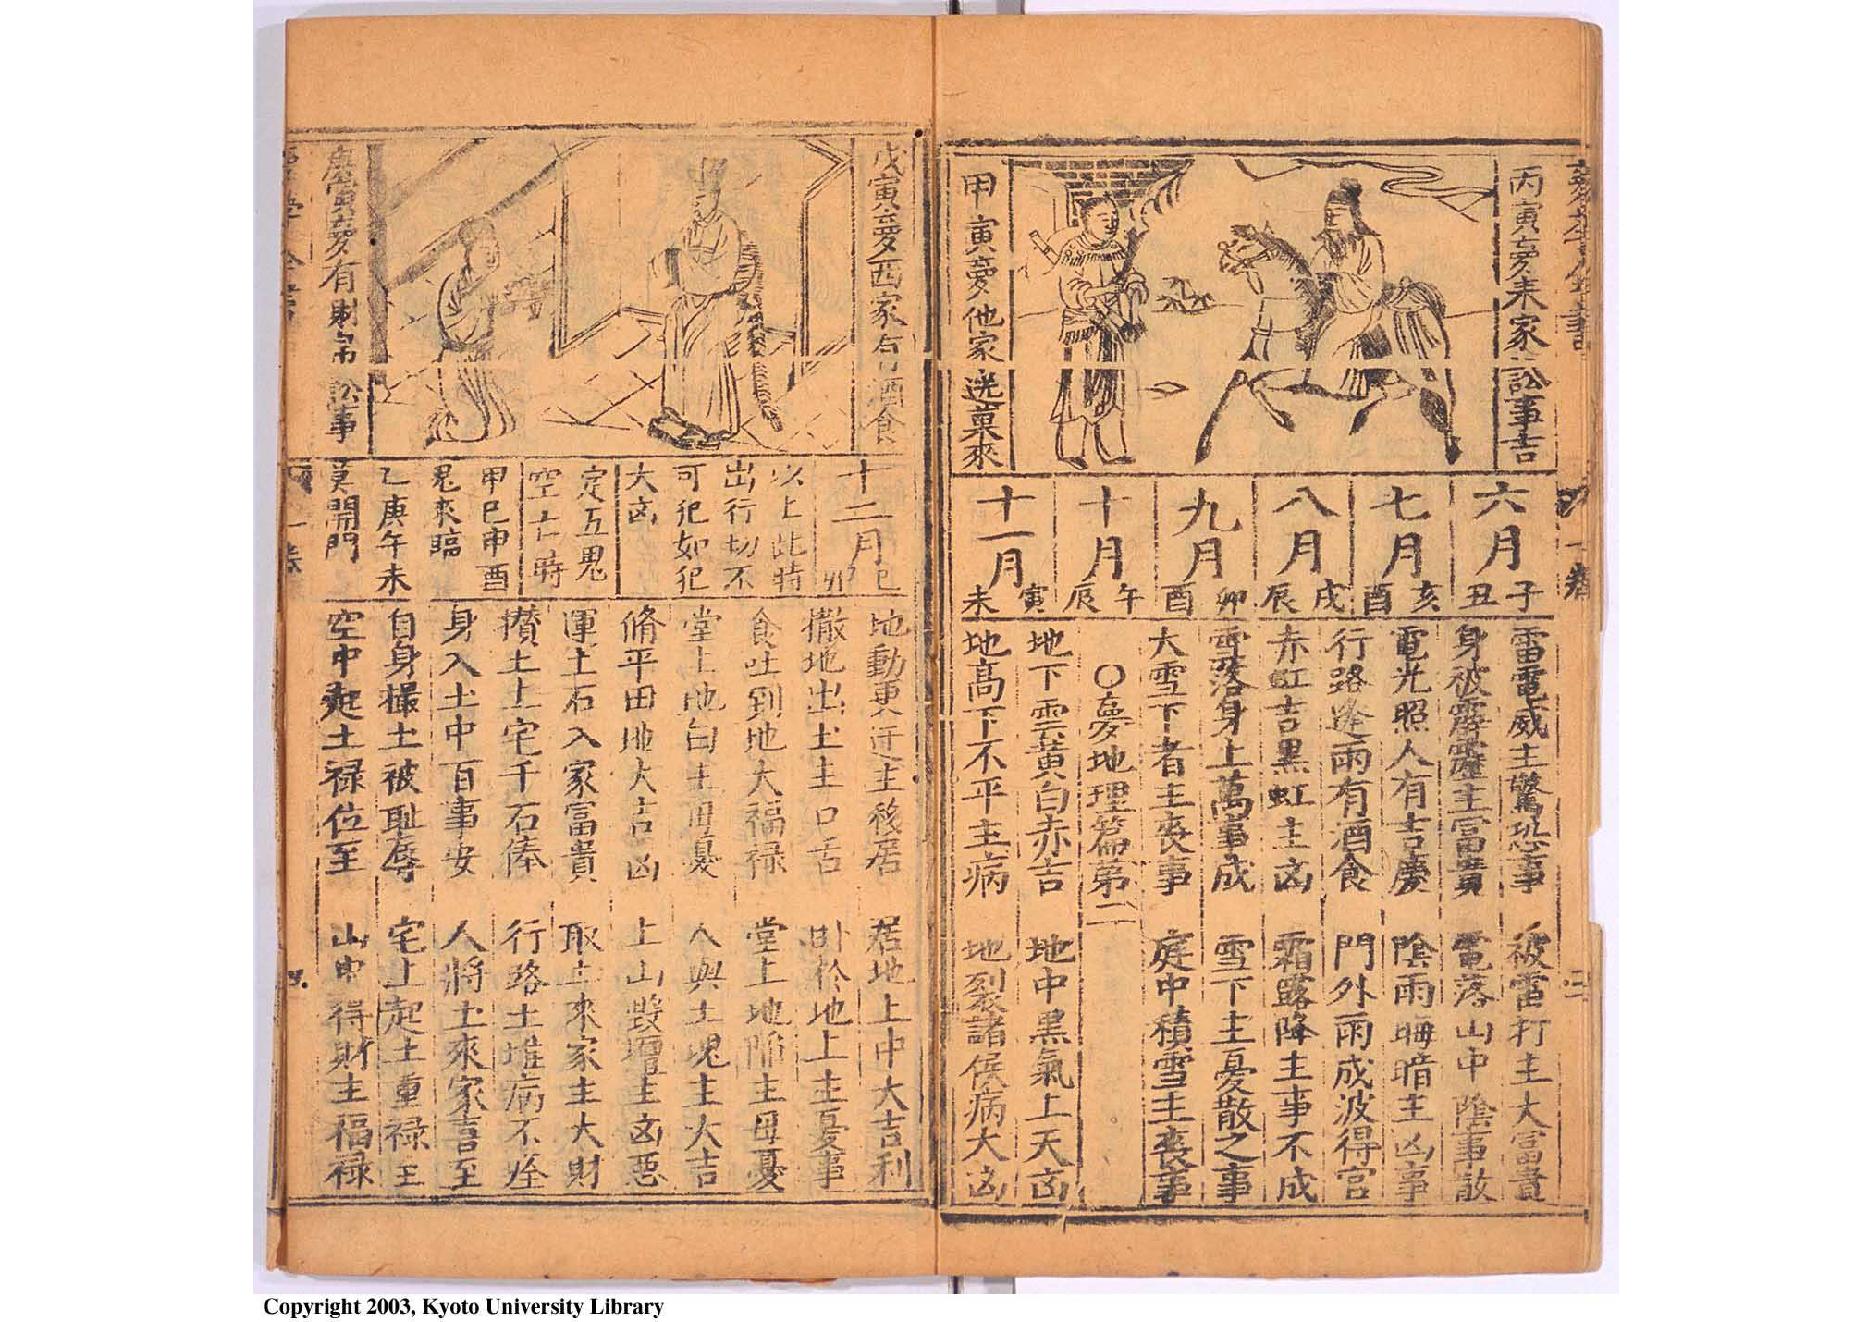 丙寅夢未家訟事吉
甲寅夢他家送菓來
六月
子丑
七月
亥酉
八月
戌辰
九月
卯酉
十月
午辰
十一月
寅未
雷電威主驚恐事 被雷打主大富貴
身被霹靂主富貴 電落山中陰事散
電光照人有吉慶 陰雨晦暗主凶事
行路逢雨有酒食 門外雨成波得官
赤虹吉黑虹主凶 霜露降主事不成
雪落身上萬事成 雪下主憂散之事
大雪下者主喪事 庭中積雪主喪事
〇夢地理篇第二
地下雲黃白赤吉 地中黑氣上天凶
地高下不平主病 地裂諸侯病大凶
戊寅夢西家有酒食
庚寅夢有財帛訟事
十二月
巳卯
以上此時
出行切不
可犯如犯
大凶
定五鬼
空亡時
甲巳申酉
鬼來臨
乙庚午未
莫開門
地動更迁主移居 居地上中大吉利
撒地出土主口舌 卧於地上主憂事
食吐到地大福禄 堂上地陷主母憂
堂上地白主母憂 人與土塊主大吉
脩平田地大吉凶 上山毀壇主凶惡
運土石入家富貴 取土來家主大財
攅土上宅千石俸 行路土堆病不痊
身入土中百事安 人將土來家喜至
自身撮土被耻辱 宅上起土重禄主
空中起土禄位至 山中得財主福禄
Copyright 2003, Kyoto University Library